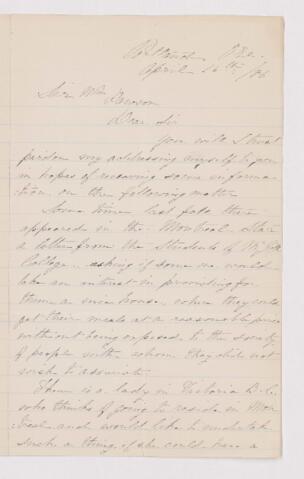 April 26th /86
Sir Wm Dawson
Dear Sir
You will I trust
pardon my addressing myself to you
in hopes of receiving some informa-
tion on the following matter
Some time last fall there
appeared in the Montreal Star
a letter from the Students of McGill
College asking if some one would
take an interest in providing for
them a nice house, where they could
get their meals at a reasonable price
without being exposed to the society
of people with whom they did not
wish to associate.
There is a lady in Victoria B.C.
who thinks of going to reside in Mon-
treal and would like to undertake
such a thing, if she could have a